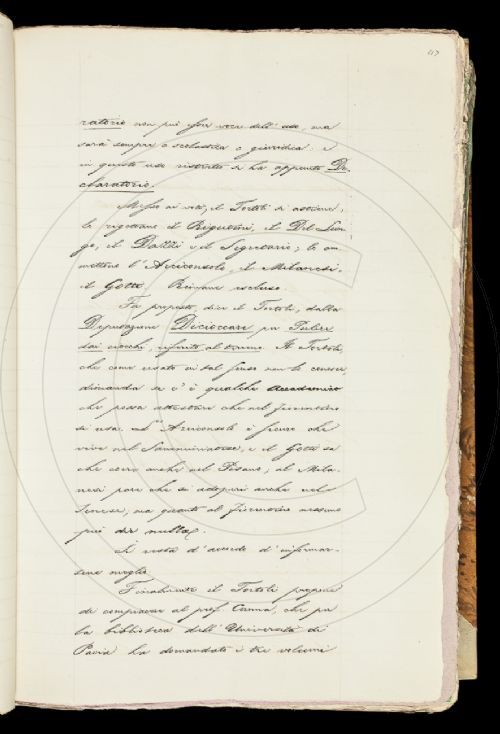 117
ratorio non può esser voce dell'uso, ma
sarà sempre o scolastica o giuridica: e
in questo uso ristretto si ha appunto De-
claratorio.
Messo ai voti, il Tortoli si astiene,
lo rigettano il Rigutini, il Del Lun-
go, il Dazzi e il Segretario; lo am-
mettono l'Arciconsolo, il Milanesi,
il Gotti. Rimane escluso.
Fu proposto, dice il Tortoli, dalla
Deputazione Dicioccare per Pulire
dai ciocchi, riferito al terreno. Il Tortoli,
che come usato in tal senso non lo conosce
dimanda se c'è qualche Accademico
che possa attestare che nel Fiorentino
si usa. L'Arciconsolo è sicuro che
vive nel Samminiatese, e il Gotti sa
che corre anche nel Pisano; al Mila-
nesi pare che si adoperi anche nel
Senese; ma quanto al Fiorentino nessuno
può dir nulla.
Si resta d'accordo d'informar-
sene meglio.
Finalmente il Tortoli propone
di compiacere al prof. Canna, che per
la biblioteca dell'Università di
Pavia ha domandato i tre volumi